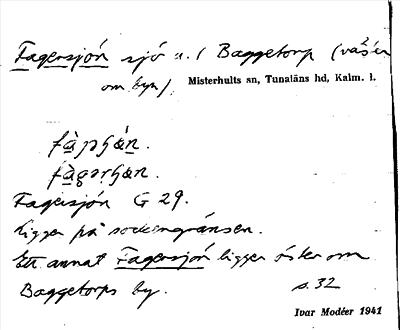 Fagersjón sjö u. / Baggetorp (väster
om byn)
Misterhults sn, Tunaläns hd, Kalm. l.
Fagersjón G 29.
Ligger på sockengränsen.
Ett annat Fagersjón ligger öster om
Baggetorps by. s. 32
Ivar Modéer 1941